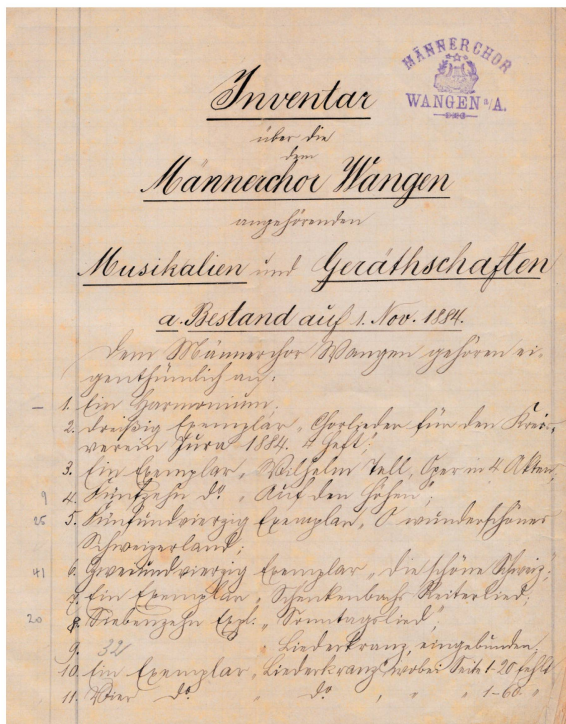 MÄNNERCHOR
WANGEN a/A.
Inventar
über die
dem
Männerchor Wangen
angehörenden
Musikalien und Geräthschaften
a. Bestand auf 1. Nov. 1884.
Dem Männerchor Wangen gehören ei-
genthümlich an:
– 1. Ein Harmonium;
2. Dreißig Exemplar „Chorlieder für den Kreis-
verein Jura 1884. 4 Heft;
3. Ein Exemplar „Wilhelm Tell, Oper in 4 Akten;
9 4. Fünfzehn do „Auf den Höhen";
25 5. Fünfundvierzig Exemplar, O wunderschönes
Schweizerland;
41 6. Zweiundvierzig Exemplar „Die schöne Schweiz";
7. Ein Exemplar „Schenkenbachs Reiterlied;
20 8. Siebenzehn Expl. „Sonntagslied";
9. 32 „Liederkranz, eingebunden;
10. Ein Exemplar, Liederkranz wobei Seite 1-20 fehlt
11. Vier do „ do „ „ „ 1-60 "